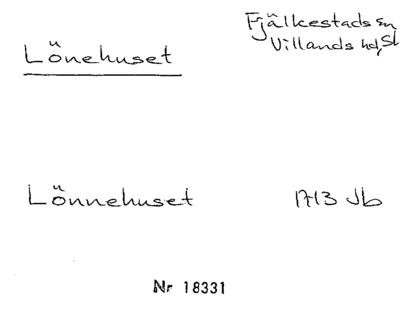 Lönehuset
Fjälkestads sn
Villands hd, Sk
Lönnehuset 1713 Jb
Nr 18331